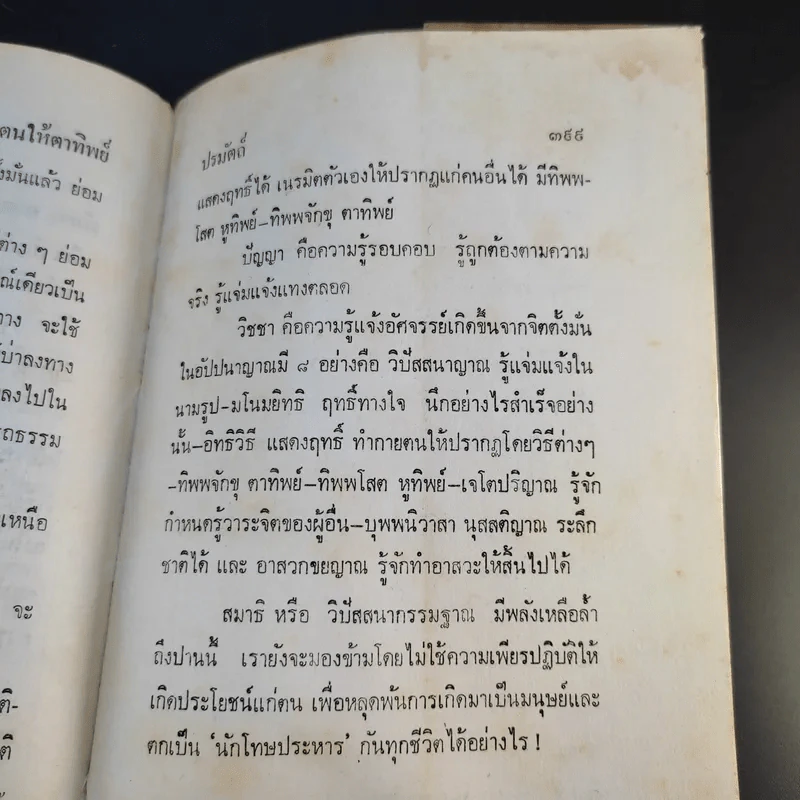 ตนให้ตาทิพย์
งมั่นแล้ว ย่อม
ต่าง ๆ ย่อม
ณ์เดียวเป็น
ทาง จะใช้
บ่าลงทาง
ลงไปใน
ถธรรม
เหนือ
จะ
ติ-
ติ
ปรมัตถ์ ๓๙๙
แสดงฤทธิ์ได้ เนรมิตตัวเองให้ปรากฏแก่คนอื่นได้ มีทิพพ-
โสต หูทิพย์-ทิพพจักขุ ตาทิพย์
ปัญญา คือความรู้รอบคอบ รู้ถูกต้องตามความ
จริง รู้แจ่มแจ้งแทงตลอด
วิชชา คือความรู้แจ้งอัศจรรย์เกิดขึ้นจากจิตตั้งมั่น
ในอัปปนาญาณมี ๘ อย่างคือ วิปัสสนาญาณ รู้แจ่มแจ้งใน
นามรูป-มโนมยิทธิ ฤทธิ์ทางใจ นึกอย่างไรสำเร็จอย่าง
นั้น-อิทธิวิธี แสดงฤทธิ์ ทำกายตนให้ปรากฏโดยวิธีต่างๆ
-ทิพพจักขุ ตาทิพย์-ทิพพโสต หูทิพย์-เจโตปริญาณ รู้จัก
กำหนดรู้วาระจิตของผู้อื่น-บุพพนิวาสา นุสสติญาณ ระลึก
ชาติได้ และ อาสวกขยญาณ รู้จักทำอาสวะให้สิ้นไปได้
สมาธิ หรือ วิปัสสนากรรมฐาณ มีพลังเหลือล้ำ
ถึงปานนี้ เรายังจะมองข้ามโดยไม่ใช้ความเพียรปฏิบัติให้
เกิดประโยชน์แก่ตน เพื่อหลุดพ้นการเกิดมาเป็นมนุษย์และ
ตกเป็น 'นักโทษประหาร' กันทุกชีวิตได้อย่างไร !